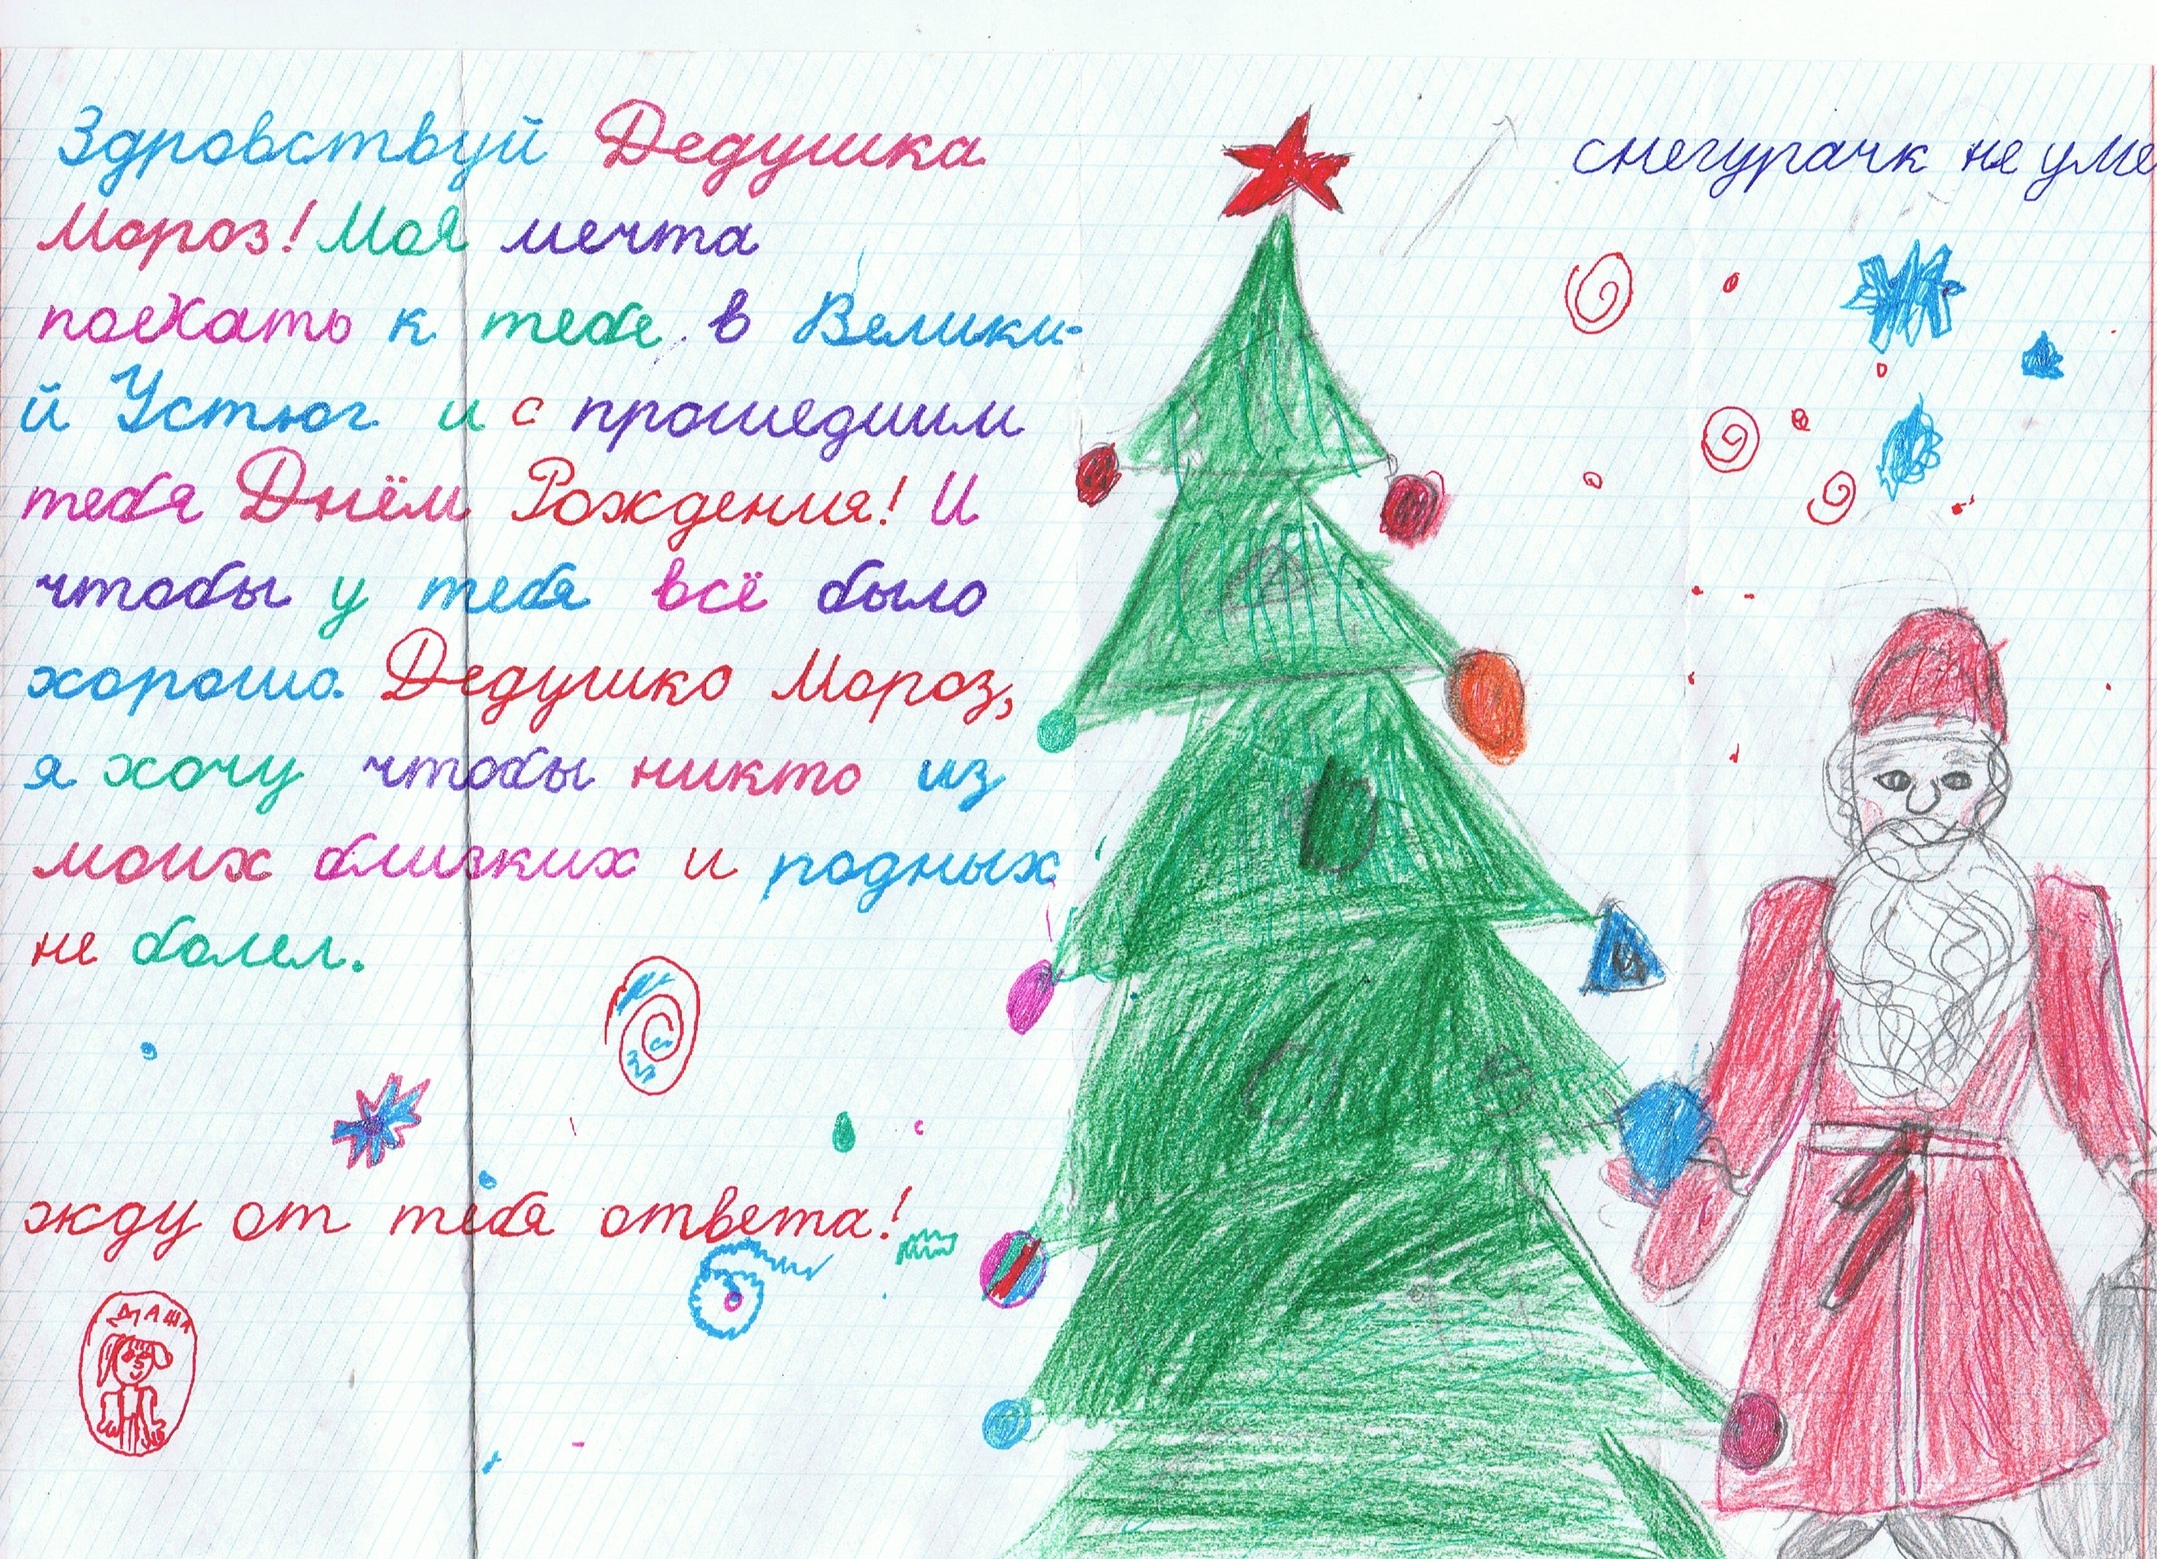 Здровствуй Дедушка
Мороз! Моя мечта
поехать к тебе в Велики-
й Устюг и с прошедшим
тебя Днём Рождения! И
чтобы у тебя всё было
хорошо. Дедушко Мороз,
я хочу чтобы никто из
моих близких и родных
не болел.
жду от тебя ответа!
ДАША
снегурачк не уме